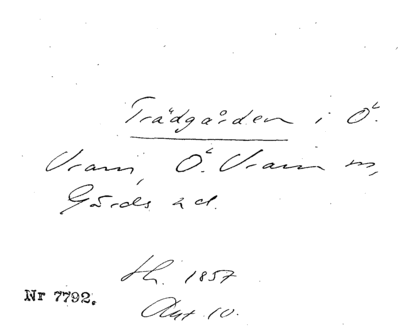 Trädgården i Ö.
Vram, Ö. Vram m,
Gärds hd.
Hl. 1857
Nr 7792.
Akt 10.